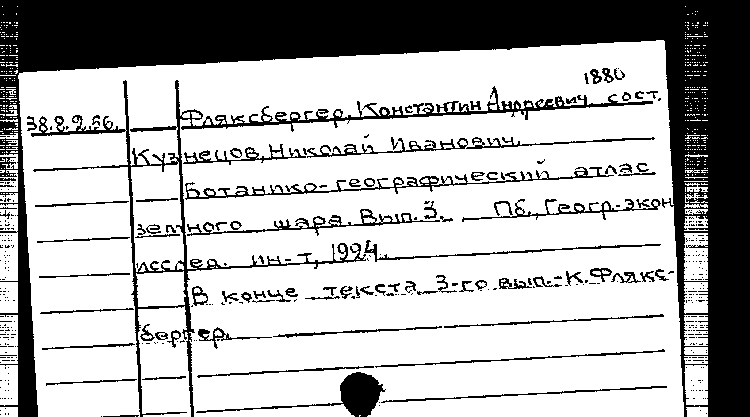 1880
38.8.2.56. Фляксбергер, Константин Андреевич, сост.
Кузнецов, Николай Иванович.
Ботанико-географический атлас
земного шара. Вып. 3. Пб., Геогр.-экон
исслед. ин-т, 1924.
В конце текста 3-го вып.-К. Флякс-
бергер.